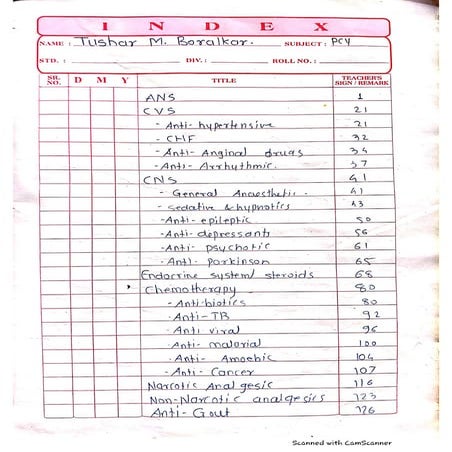 INDEX
NAME : Tushar M. Boralkar. SUBJECT : PCY
STD. : DIV. : ROLL NO. :
SR. NO. D M Y TITLE TEACHER'S SIGN / REMARK
ANS 1
CVS 21
- Anti-hypertensive 21
- CHF 32
- Anti-Anginal drugs 34
- Anti-Arrhythmic. 37
CNS 41
- General Anaesthetic. 41
- sedative & hypnotics 43
- Anti-epileptic 50
- Anti-depressants 56
- Anti-psychotic 61
- Anti-parkinson 65
Endocrine system/steroids 68
Chemotherapy 80
- Antibiotics 80
- Anti-TB 92
- Anti viral 96
- Anti-malarial 100
- Anti-Amoebic 104
- Anti-Cancer 107
Narcotic Analgesic 116
Non-Narcotic analgesics 123
Anti-Gout 126
Scanned with CamScanner